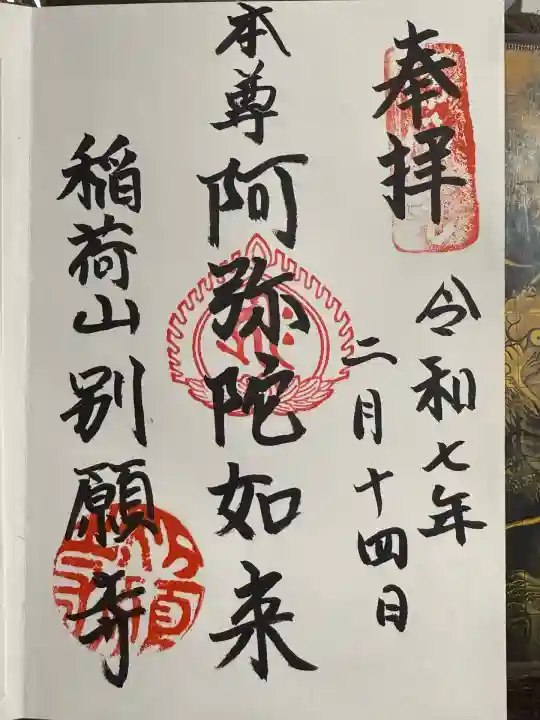 奉拝
令和七年
二月十四日
本尊 阿弥陀如来
稲荷山別願寺